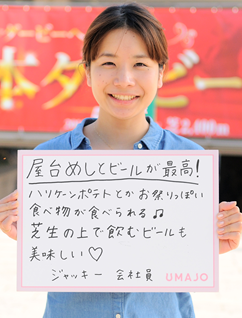 ダービーへ
本ダービー
屋台めしとビールが最高!
ハリケーンポテトとかお祭りっぽい
食べ物が食べられる♫
芝生の上で飲むビールも
美味しい♡
ジャッキー 会社員
UMAJO